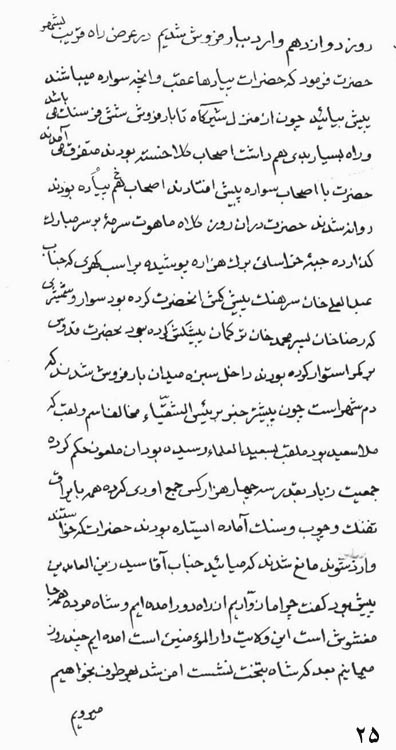 روز دوازدهم وارد ببار فروش شدیم در عرض راه قریب بشهر
حضرت فرمود که حضرات پیاده‌ها عقب وانچه سواره میباشند
پیش بیائید چون از منزل شیرکاه تا بار فروش شش فرسنک می باشد
و راه بسیار بدی هم داشت اصحاب کلا خسته بودند متفرق می آمدند
حضرت با اصحاب سواره پیش افتادند اصحاب هم پیاده بودند
روانه شدند حضرت دران روز کلاه ماهوت سرمهٔ بر سر مبارک
کذارده جبهٔ خراسانی برک هزاره پوشیده بر اسب کهری که جناب
عبدالعلی خان سرهنک پیش کش انحضرت کرده بود سوار و شمشیری
که رضا خان پسر محمد خان ترکمان پیشکش کرده بود بحضرت قدوس
بر کمر استوار کرده بودند داخل سبزه میدان بار فروش شدند که
دم شهر است چون پیشتر خبر برئیس الشقیاء مخالف اسم و لقب که
ملا سعید بود ملقب بسعید العلماء رسیده بود ان ملعون حکم کرده
جمعیت زیاد بقدر سه چهار هزار کس جمع اوری کرده همه با یراق
تفنک و چوب و سنک آماده ایستاده بودند حضرات که خواستند
وارد شوند مانع شدند که میائید جناب آقا سید زین العابدین
پیش بود کفت چرا ما زواریم از راه دور امده ایم و شاه مرده همه جا
مغشوش است این ولایت دار المؤمنین است امده ایم چند روز
میمانیم بعد که شاه بتخت نشست امن شد بهر طرف بخواهیم
میرویم
۲۵